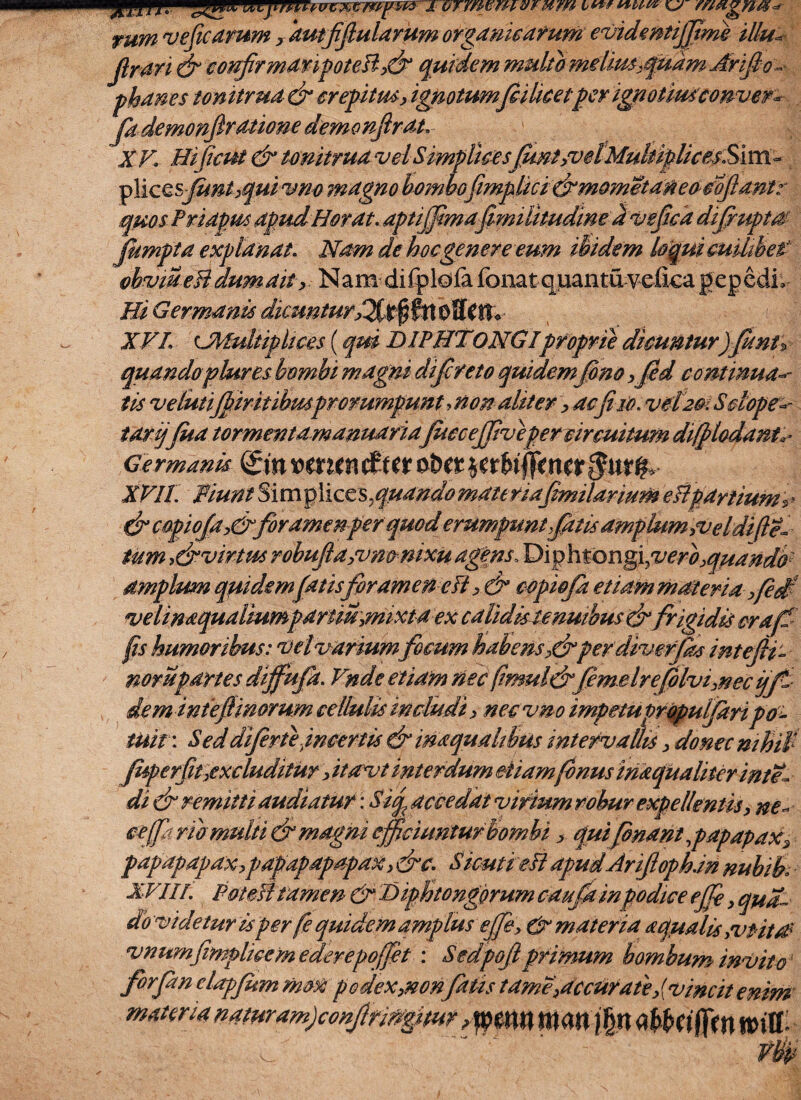 rum veſicarum, aut fiſtularum organicarum evidentiſſimè illu-
ſtrari & confirmari poteſt, & quidem multò meliùs, quàm Ariſto-
phanes tonitrua & crepitus, ignotum ſcilicet per ignotius conver-
ſa demonſtratione demonſtrat.
XV. Hi ſicut & tonitrua vel Simplices ſunt, vel Multiplices. Sim-
plices ſunt, qui vno magno bombo ſimplici & mometaneo coſtant:
quos Priapus apud Horat. aptiſſima ſimilitudine à veſica diſrupta
ſumpta explanat. Nam de hoc genere eum ibidem loqui cuilibet
obviũ eſt dum ait, Nam diſploſa ſonat quantũ veſica pepêdi.
Hi Germanis dicuntur,
XVI. Multiplices (qui DIPHTONGI propriè dicuntur) ſunt,
quando plures bombi magni diſcreto quidem ſono, ſed continua-
tis veluti ſpiritibus prorumpunt, non aliter, ac ſi 10. vel 20. Sclope-
tarij ſua tormenta manuaria ſucceſſivè per circuitum diſplodant.
Germanis Ein oder zerbiſſener Furtz.
XVII. Fiunt Simplices, quando materia ſimilarium eſt partium,
& copioſa, & foramen per quod erumpunt ſatis amplum, vel diſtē-
tum, & virtus robuſta, vno nixu agens. Diphtongi, verò, quando
amplum quidem ſatis foramen eſt, & copioſa etiam materia, ſed
vel inæqualium partiũ, mixta ex calidis tenuibus & frigidis craſ-
ſis humoribus: vel varium focum habens, & per diverſas inteſti-
norũ partes diffuſa. Vnde etiam nec ſimul & ſemel reſolvi, nec ijſ-
dem inteſtinorum cellulis includi, nec vno impetu propulſari po-
tuit: Sed diſertè, incertis & inæqualibus intervallis, donec nihil
ſuperſit, excluditur, ita vt interdum etiam ſonus inæqualiter intē-
di & remitti audiatur: Siq; accedat virium robur expellentis, ne-
ceſſariò multi & magni efficiuntur bombi, qui ſonant, papapax,
papapapax, papapapapax, &c. Sicuti eſt apud Ariſtoph. in nubib.
XVIII. Poteſt tamen & Diphtongorum cauſa in podice eſſe, quā-
do videtur is per ſe quidem amplus eſſe, & materia æqualis, vt ita
vnum ſimplicem edere poſſet: Sed poſt primum bombum invito
forſan elapſum mox podex, non ſatis tamē, accuratè, (vincit enim
materia naturam) conſtringitur, wenn man jhn abbeiſſen will.